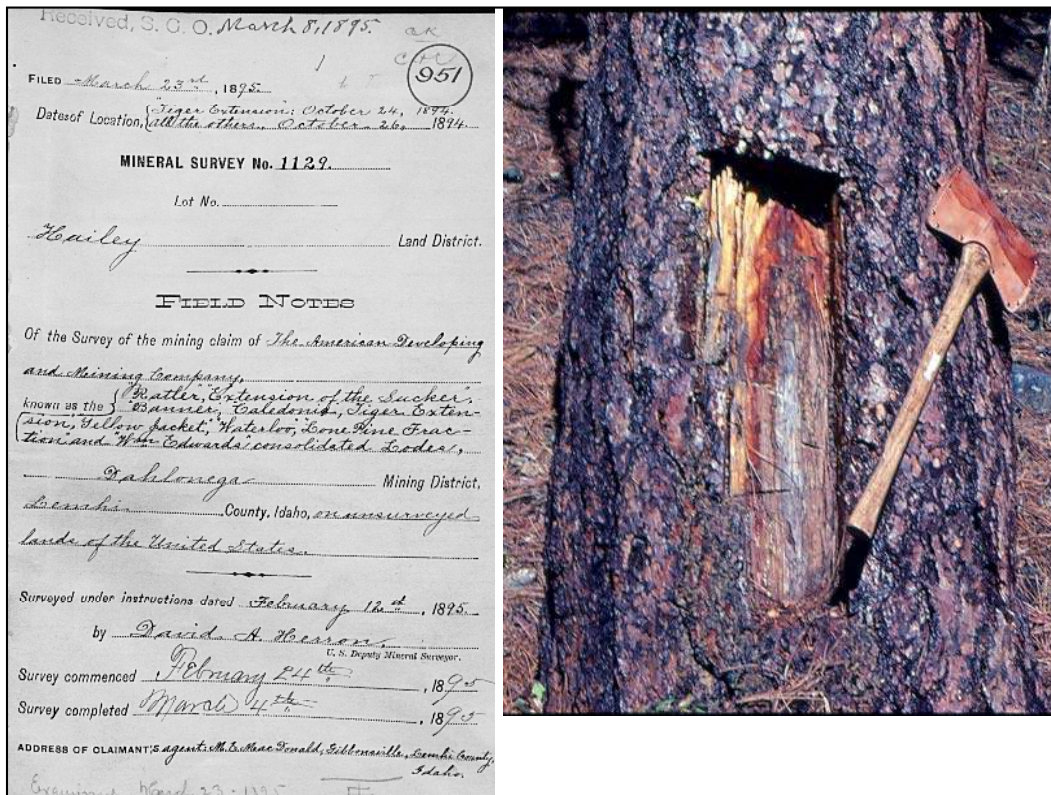 Received, S. G. O. March 8, 1895.
OK
951
FILED March 23rd, 1895.
Dates of Location, { Tiger Extension: October 24, 1894.
all the others, October 26, 1894.
MINERAL SURVEY No. 1129.
Lot No.
Hailey Land District.
FIELD NOTES
Of the Survey of the mining claim of The American Developing
and Mining Company,
known as the { "Ratler", "Extension of the Sucker",
"Banner, Caledonia, Tiger Exten-
sion, Yellow Jacket, Waterloo, Lone Pine Frac-
tion and "Wm Edwards" consolidated Lodes,
Dahlonega Mining District,
Lemhi County, Idaho, on unsurveyed
lands of the United States.
Surveyed under instructions dated February 12th, 1895.
by David A. Herron,
U. S. Deputy Mineral Surveyor.
Survey commenced February 24th, 1895
Survey completed March 4th, 1895
ADDRESS OF CLAIMANT'S agent: M. E. MacDonald, Gibbonsville, Lemhi County,
Idaho.
Examined March 23 - 1895